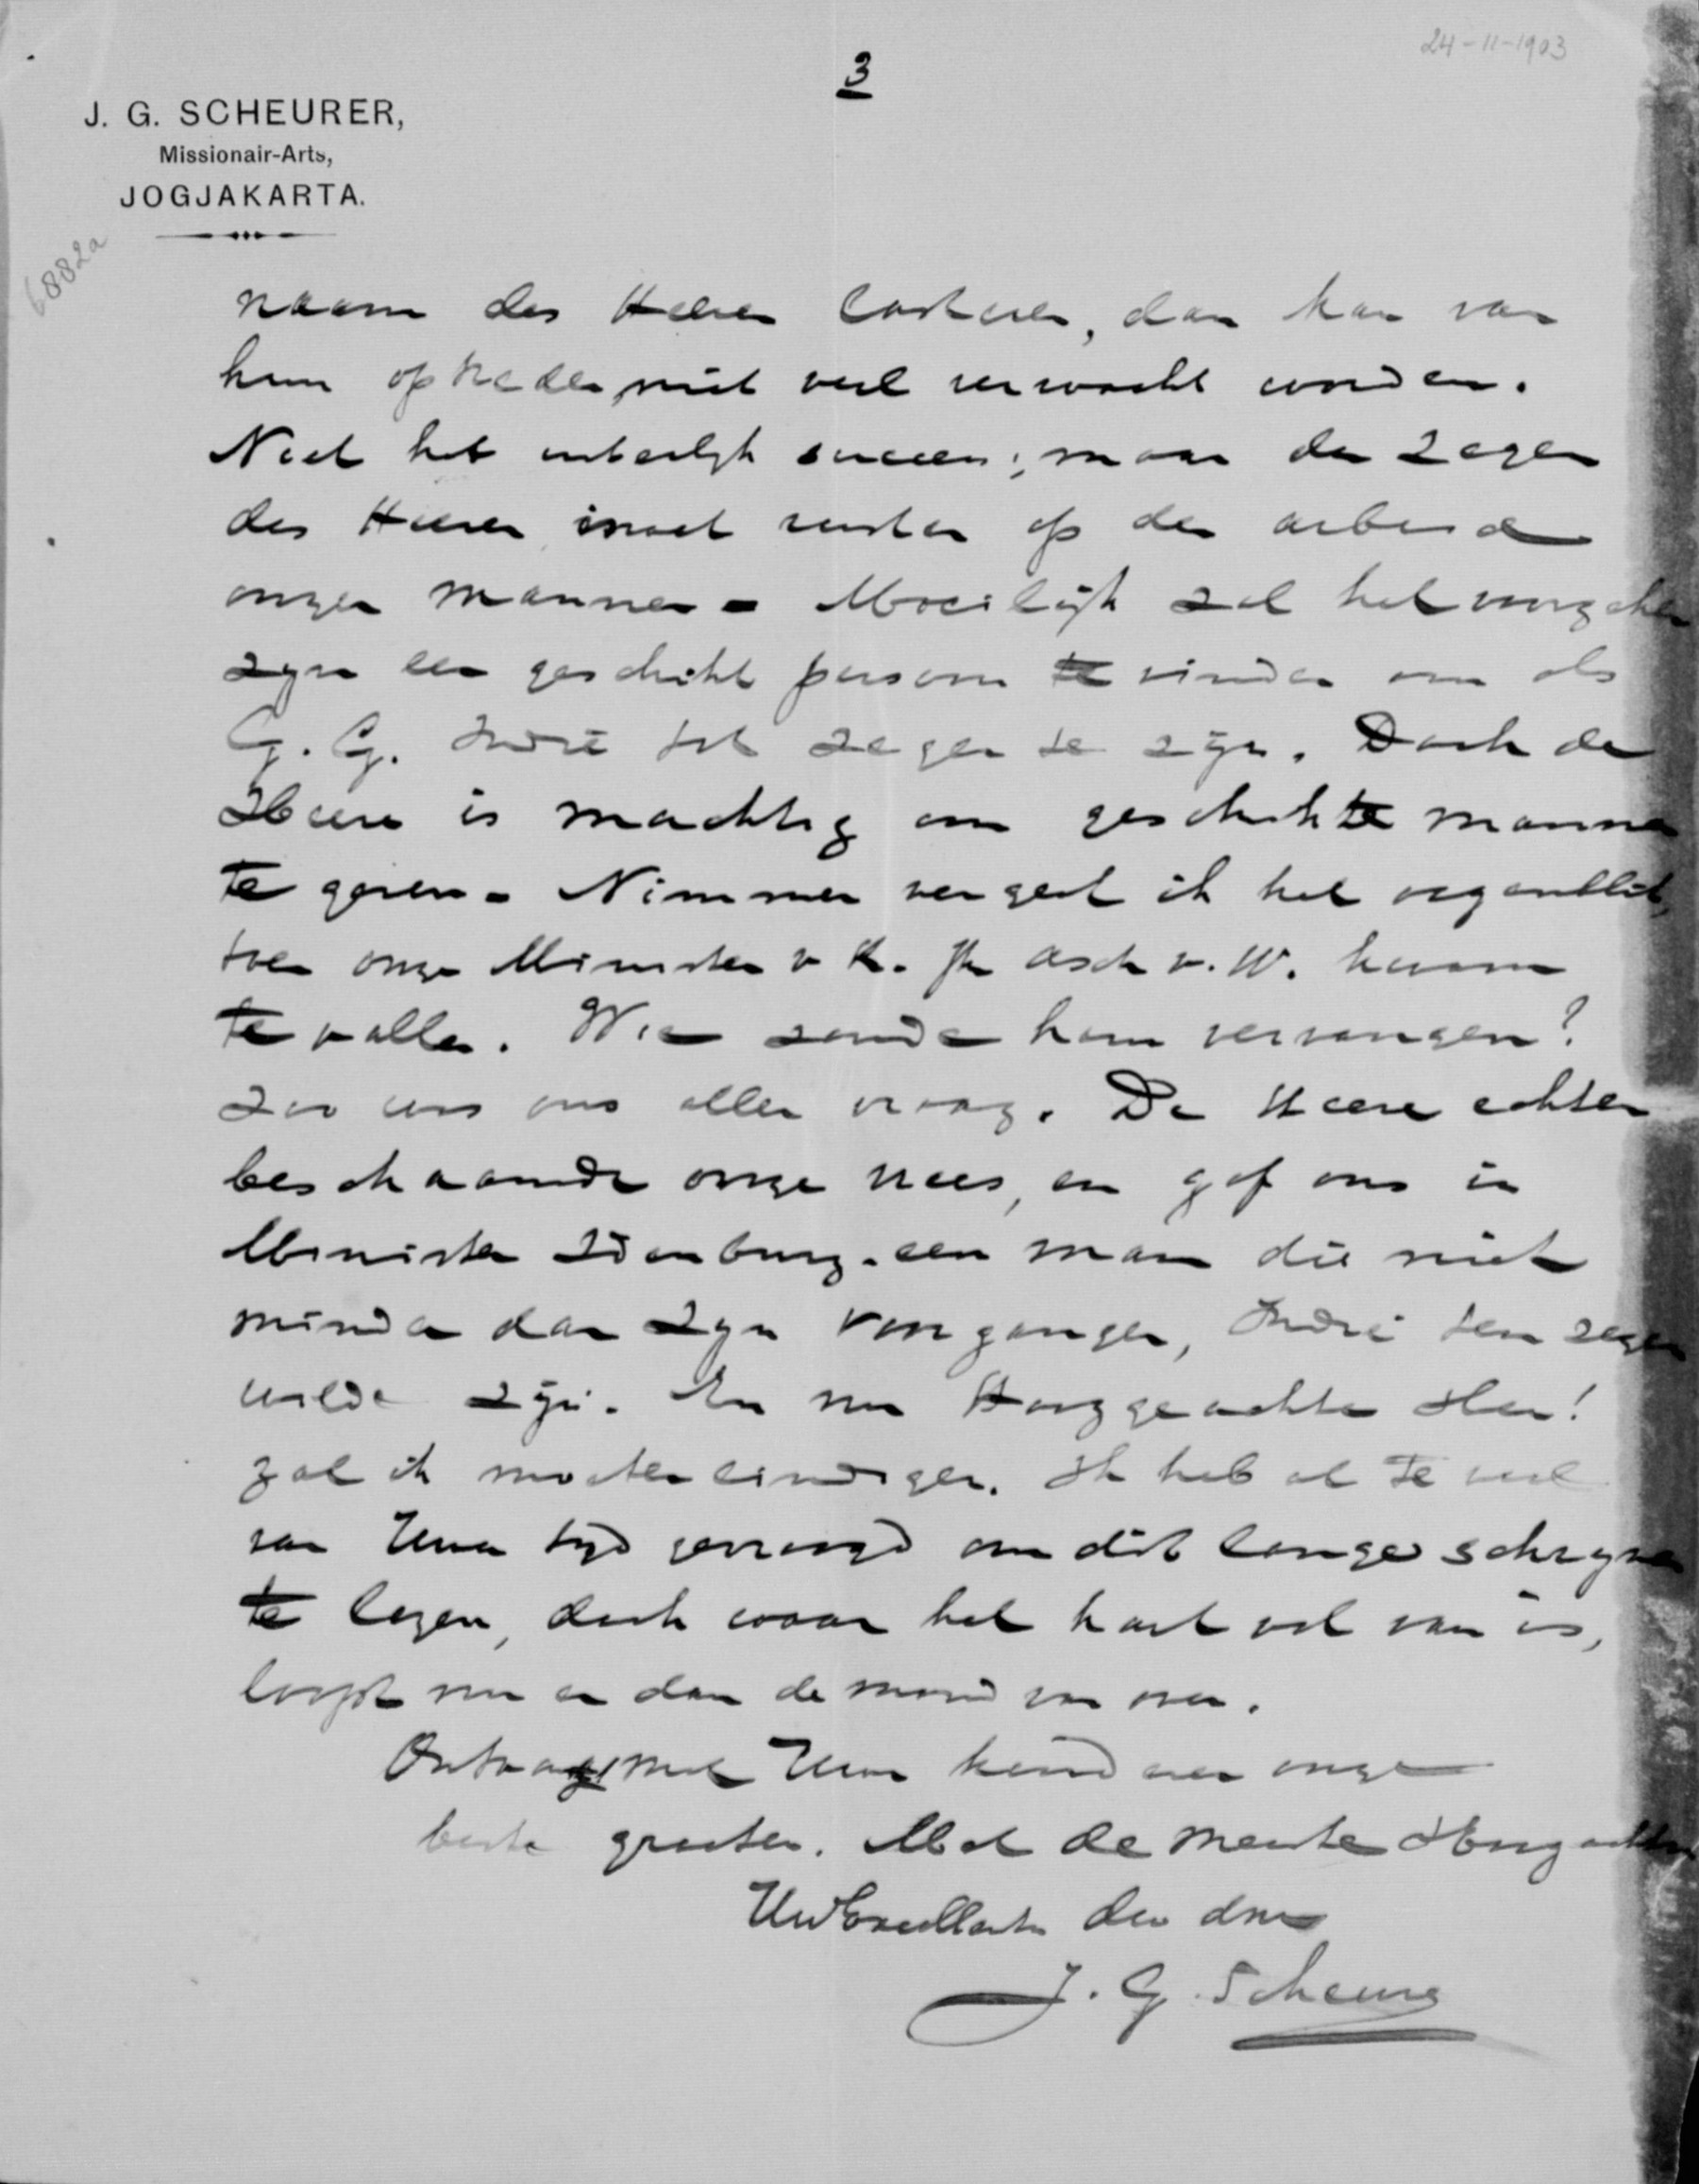 24-11-1903
3
J. G. SCHEURER,
Missionair-Arts,
JOGJAKARTA.
6882a
naam des Heeren lasteren, dan kan van
hun optreden, niet veel verwacht worden.
Niet het uiterlijk succes; maar de zegen
des Heeren moet rusten op den arbeid
onzer mannen. Moeilijk zal het
zijn een geschikt persoon te vinden om als
G. G. Indië tot zegen te zijn. Doch de
Heere is machtig om geschikte mannen
te geven. Nimmer vergeet ik het oogenblik,
toen onze Minister v K. Jhr Asch v. W. kwam
te vallen. Wie zoude hem vervangen?
zoo was ons aller vraag. De Heere echter
beschaamde onze vrees, en gaf ons in
Minister Idenburg een man die niet
minder dan zijn voorganger, Indië ten zegen
wilde zijn. En nu Hooggeachte Heer!
zal ik moeten eindigen. Ik heb al te veel
van Uwen tijd gevraagd om dit lange schrijven
te lezen, doch waar het hart vol van is,
loopt nu en dan de mond van over.
Ontvang met Uwe kinderen onze
beste groeten. Met de meeste Hoogachting
Uw Excellentie's dw dnr
J. G. Scheurer